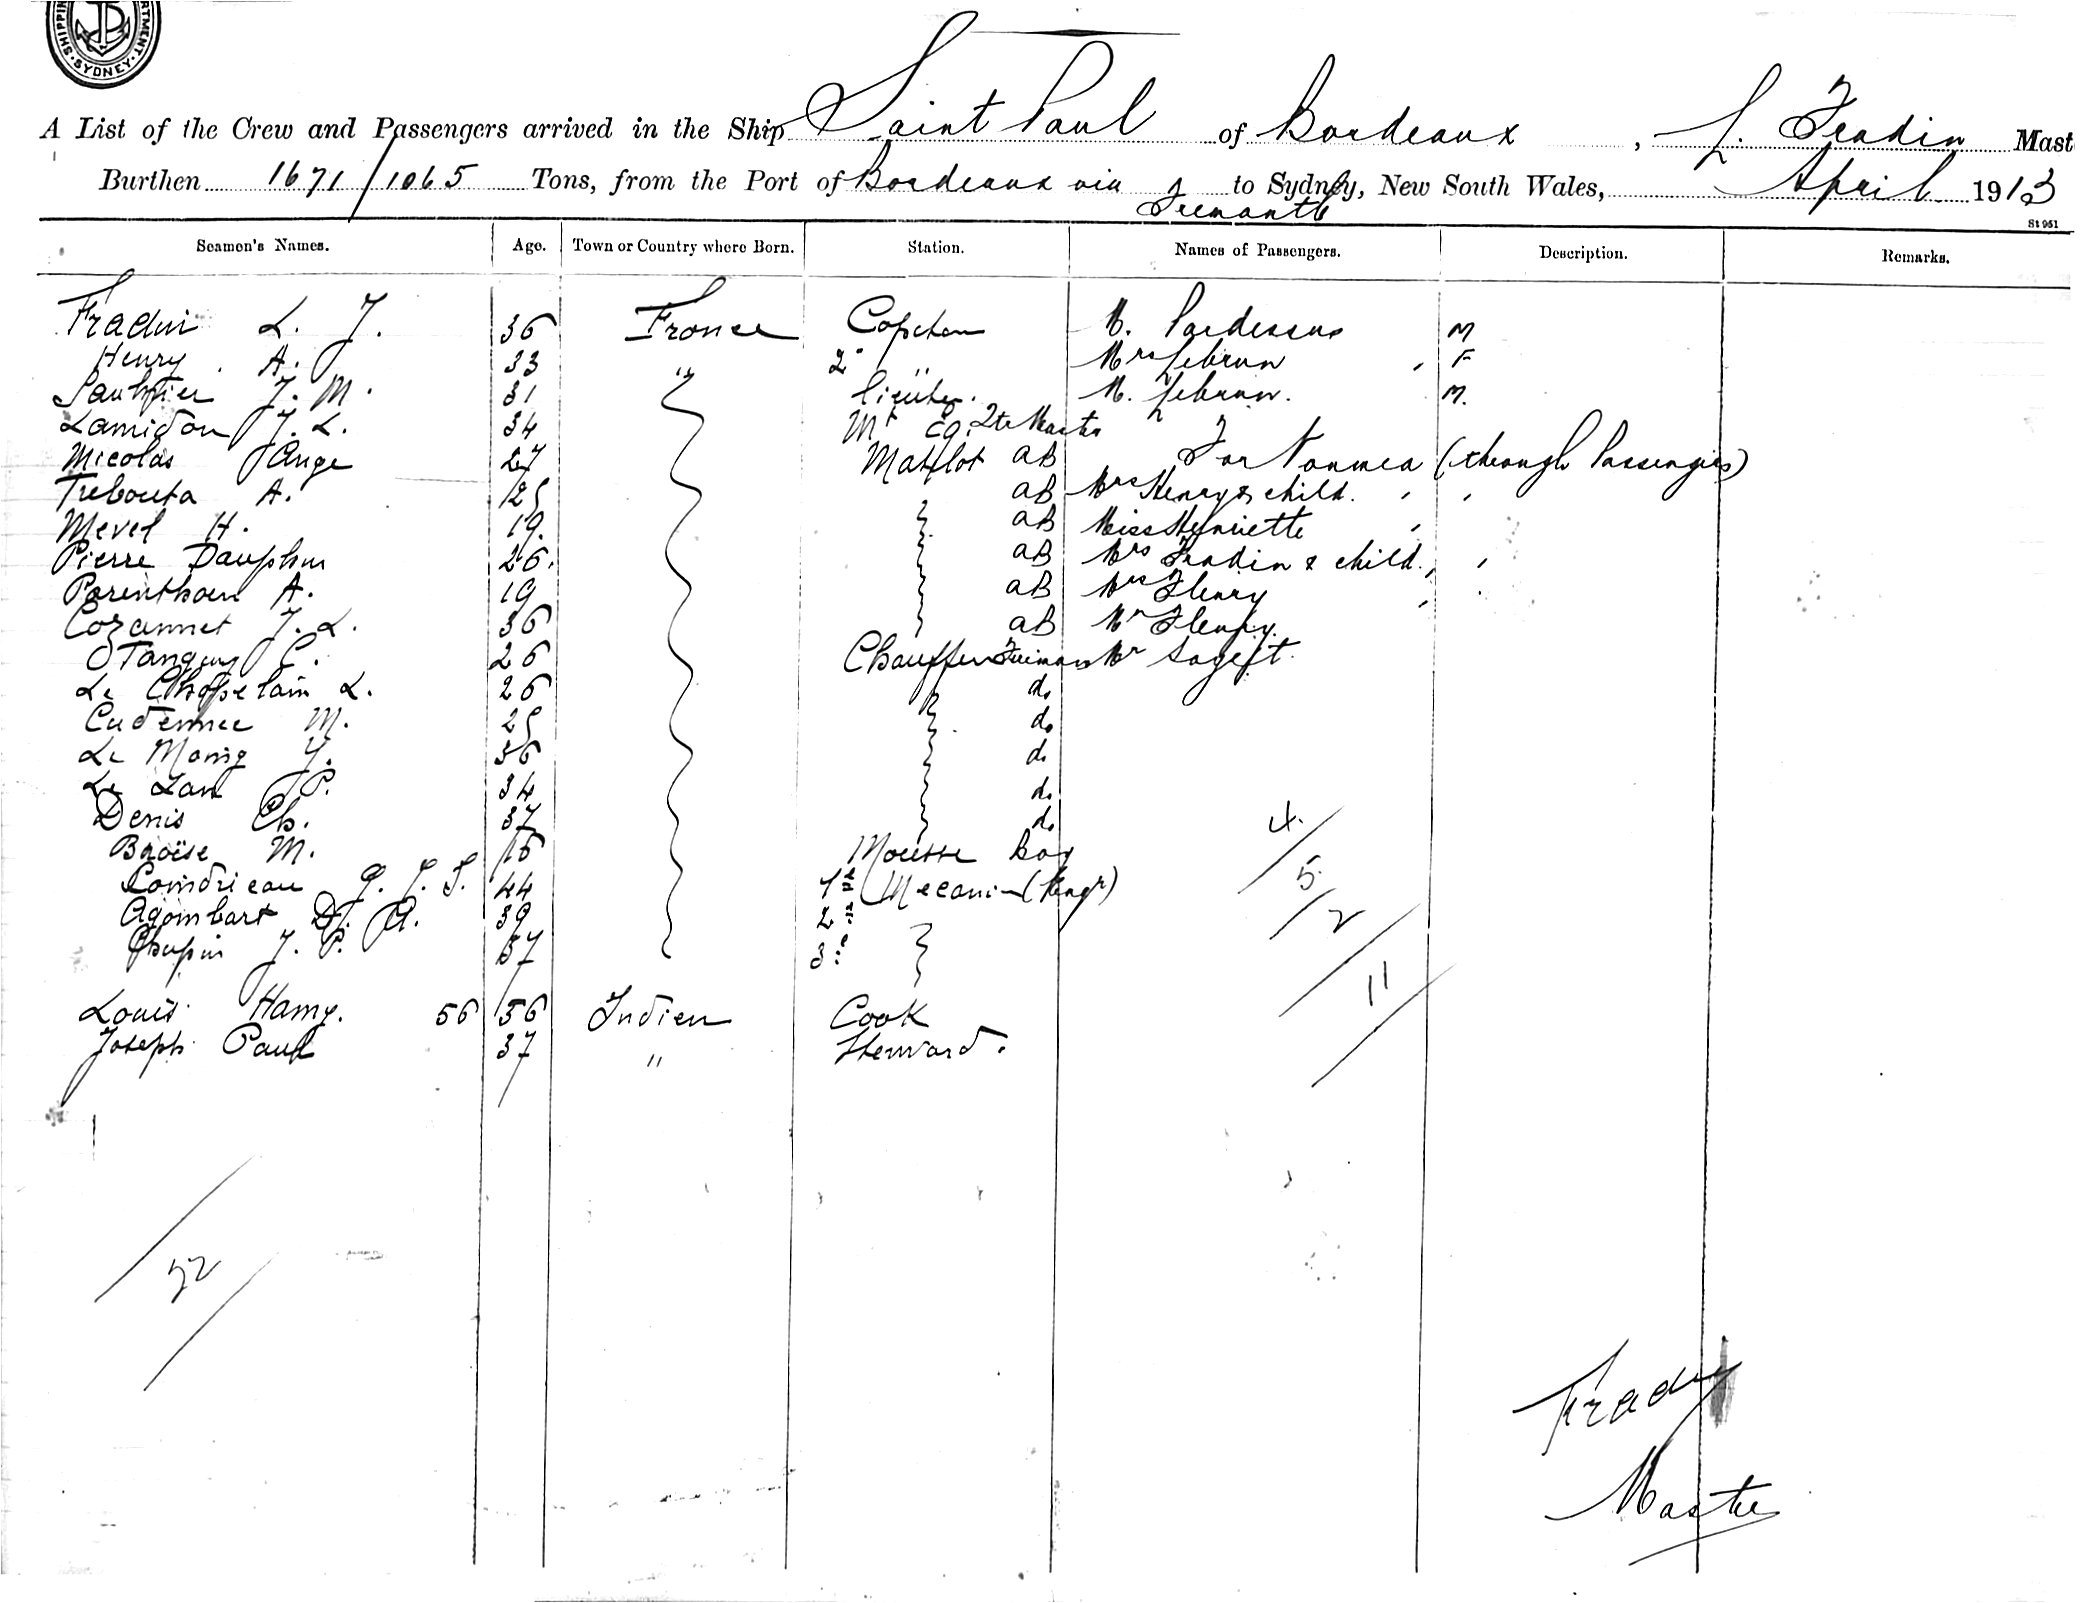 SHIPPING DEPARTMENT SYDNEY.
A List of the Crew and Passengers arrived in the Ship Saint Paul of Bordeaux, L. Fradin Mast
Burthen 1671/1065 Tons, from the Port of Bordeaux via Fremantle to Sydney, New South Wales, April 1913
St 951
Seamen's Names. Age. Town or Country where Born. Station. Names of Passengers. Description. Remarks.
Fradin L. J. 36 France Capitan M. Pardessus M
Henry A. 33 " 2e Mrs Lebrun F
J. M. 31 lieut. M. Lebrun. M.
Lamidon J. L. 34 Mt Eq.
Nicolas Ange 27 Matelot aB For Noumea (through Passengers)
A. 25 aB Mrs Henry & child.
Mevel H. 19. aB Miss Henriette
Pierre Dauphin 26. aB Mrs Fradin & child.
Parenthoen A. 19 aB Mrs Fleury
Cozannet J. L. 36 aB Mr Fleury
Tanguy C. 26 Chauffeur Fireman Mr
Le Chapelain L. 26 do
Cudennec M. 25 do
Le Moing Y. 36 do
Le Lan P. 34 do
Denis Ch. 37 do
Broïse M. 16 Mousse boy
Coindrieau G. J. J. 44 1er Mecani- (Engr)
Agombart D. A. 39 2e
Chupin J. P. 37 3e
Louis Hamy. 56 56 Indien Cook
Joseph Paul 37 " Steward.
4.
5.
2
11
22
Fradin
Master